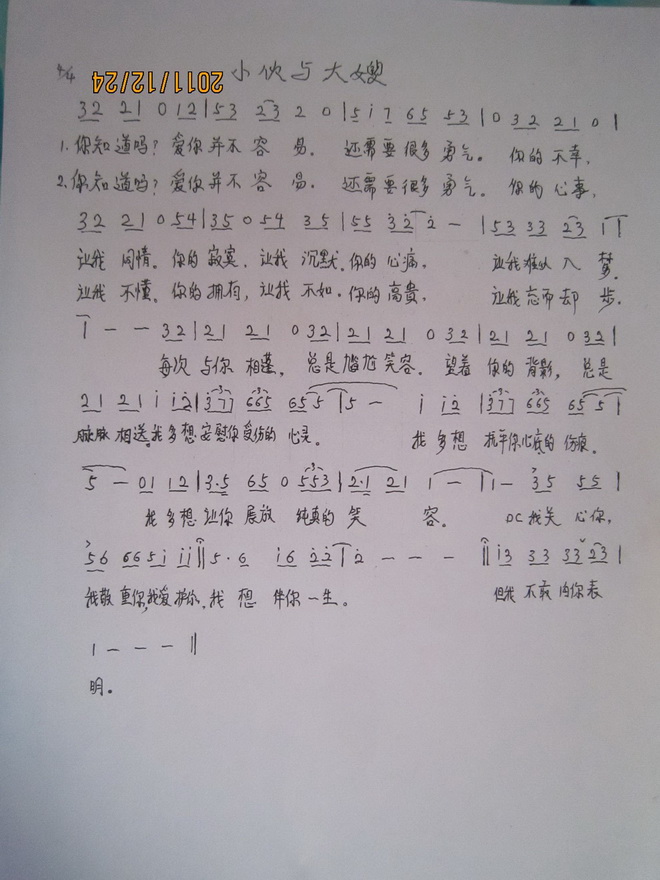 4/4 2011/12/24 小伙与大嫂
32 21 0 12 | 53 23 2 0 | 5 i 7 65 53 | 0 32 21 0 |
1. 你知道吗? 爱你并不容易. 还需要很多勇气。 你的不幸,
2. 你知道吗? 爱你并不容易. 还需要很多勇气。 你的心事,
32 21 0 54 | 35 0 54 35 | 55 32 2 — | 53 33 23 1 |
让我同情。你的寂寞, 让我沉默, 你的心痛, 让我难以入梦.
让我不懂。你的拥有, 让我不如. 你的高贵, 让我忘而却步.
1 — — 32 | 21 21 0 32 | 21 21 0 32 | 21 21 0 32 |
每次与你相逢, 总是尴尬笑容. 望着你的背影, 总是
21 21 i i2 | 377 665 65 5 | 5 — i i2 | 377 665 65 5 |
脉脉相送. 我多想安慰你受伤的心灵。 我多想抚平你心底的伤痕.
5 — 01 12 | 3·5 65 0 553 | 2·1 21 1 — | 1 — 35 55 |
我多想让你展放纯真的笑容. DC 我关心你,
56 665i ii || 5·6 i6 22 | 2 — — — || i3 33 33 23 |
我敬重你, 我爱护你. 我想伴你一生。 但我不敢向你表
1 — — — ||
明。